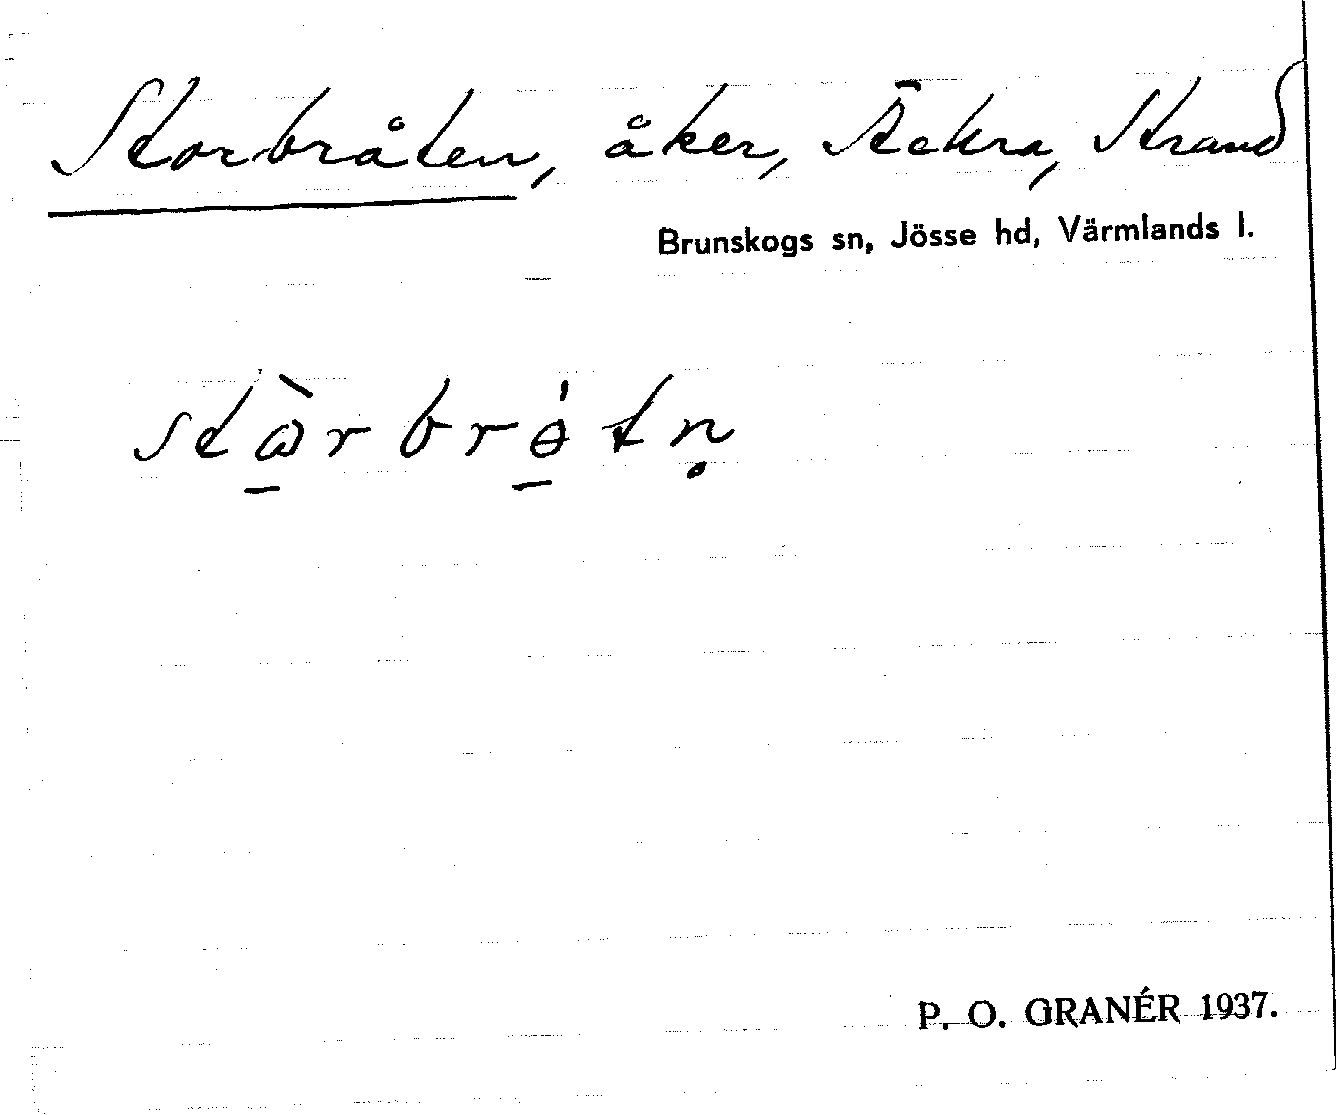 Storbråten, åker, Stekra, Strand
Brunskogs sn, Jösse hd, Värmlands l.
P. O. GRANÉR 1937.